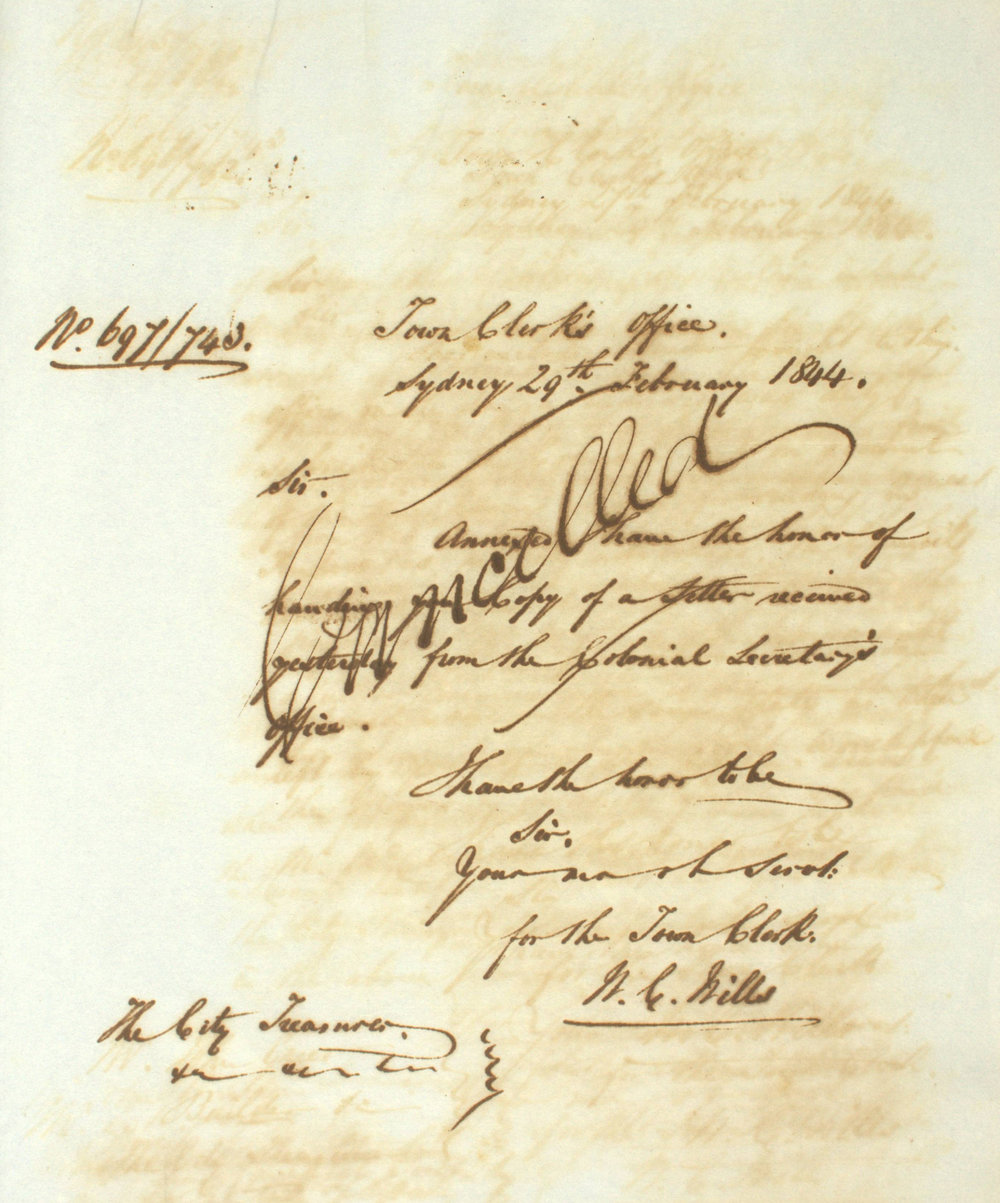 No. 697/743.
Town Clerk's Office.
Sydney 29th February 1844.
Sir.
Cancelled
Annexed I have the honor of
handing you Copy of a Letter received
yesterday from the Colonial Secretary's
Office.
I have the honor to be
Sir.
Your mo ob Servt:
for the Town Clerk.
W. C. Wills
The City Treasurer.
&c &c &c